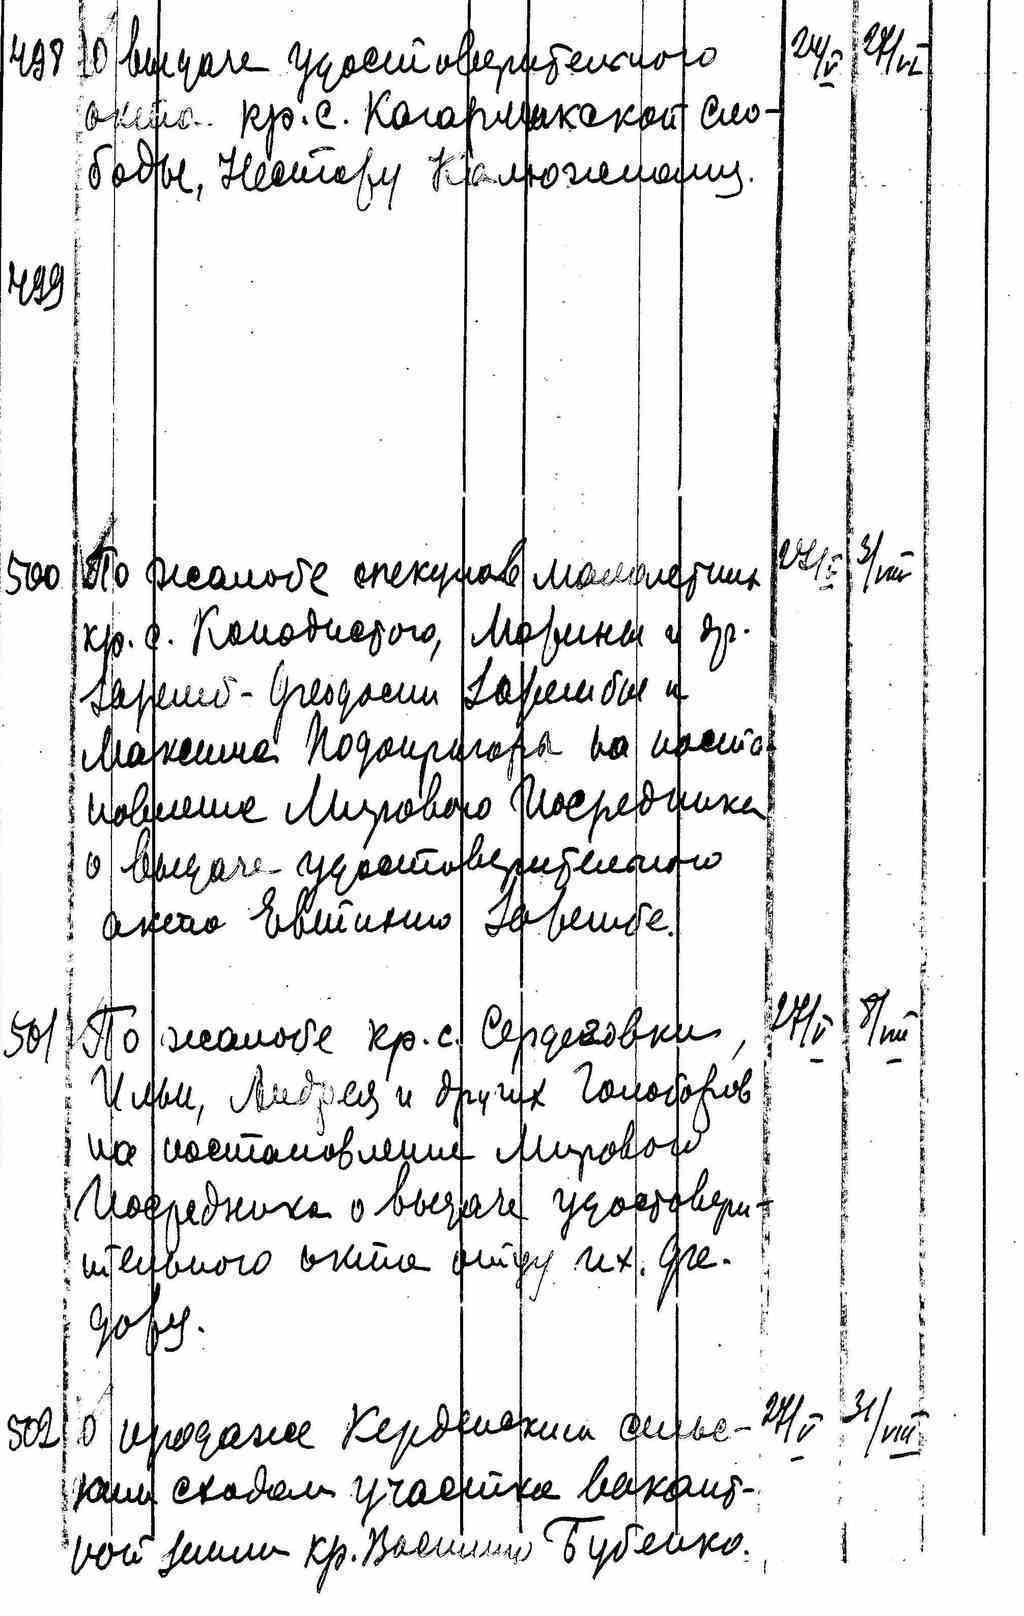 498 О выдаче удостоверительного 24/V 27/VI
акта кр. с. Кагарлыкской Сло-
боды, Нестору Калюжному.
499
500 По жалобе опекунов малолетних 27/V 3/VIII
кр. с. Колодистого, Марины и др.
Заремб - Феодосии Зарембы и
Максима Подопригоры на поста-
новление Мирового Посредника
о выдаче удостоверительного
акта Евтихию Зарембе.
501 По жалобе кр. с. Сердеговки, 27/V 8/VIII
Ильи, Андрея и других Голоборов
на постановление Мирового
Посредника о выдаче удостовери-
тельного акта отцу их. Фе-
дору.
502 О продаже Кердынским сельс- 27/V 31/VIII
ким сходом участка вакант-
ной земли кр. Василию Бубенко.